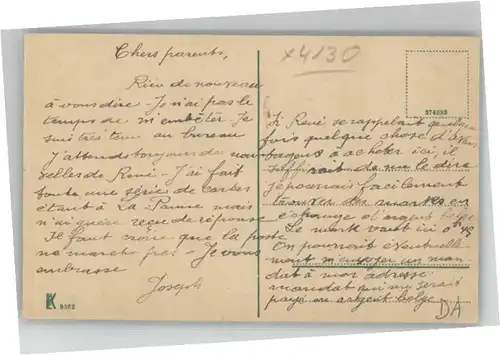 Chers parents,
x4130
Rien de nouveau
à vous dire - Je n'ai pas le
temps de m'embêter. Je
suis très tenu au bureau
J'attends toujours des nou-
velles de René - J'ai fait
toute une série de cartes
étant à La Panne mais
n'ai guère reçu de réponse
Je faut croire que la poste
ne marche pas - Je vous
embrasse
Joseph
EK 9362
374093
Si René se rappelait quelque
fois quelque chose d'
à acheter ici, il
suffirait de me le dire
je pourrais facilement
trouver des marks en
échange d'argent belge
Le mark vaut ici 0fr 48
On pourrait éventuelle-
ment m'envoyer un man
dat à mon adresse
mandat qui me serait
payé en argent belge
DA